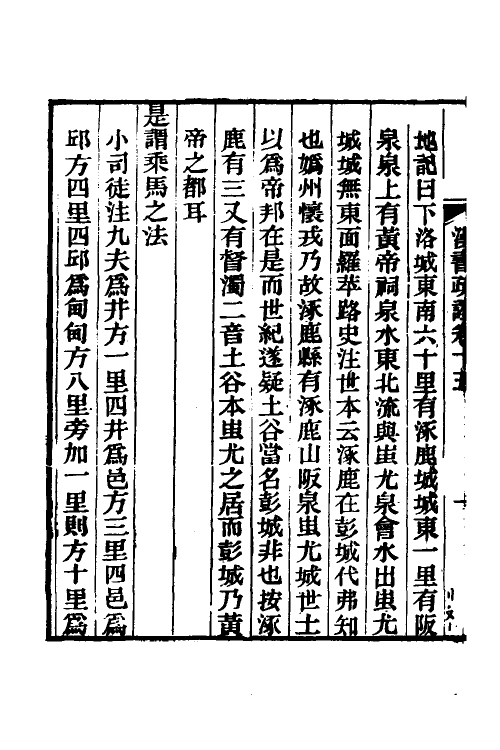 漢書疏證卷十五
地記曰下洛城東南六十里有涿鹿城城東一里有阪
泉泉上有黃帝祠泉水東北流與蚩尤泉會水出蚩尤
城城無東面羅苹路史注世本云涿鹿在彭城代弗知
也嬀州懷戎乃故涿鹿縣有涿鹿山阪泉蚩尤城世士
以爲帝邦在是而世紀遂疑土谷當名彭城非也按涿
鹿有三又有督濁二音土谷本蚩尤之居而彭城乃黃
帝之都耳
是謂乘馬之法
小司徒注九夫爲井方一里四井爲邑方三里四邑爲
邱方四里四邱爲甸甸方八里旁加一里則方十里爲